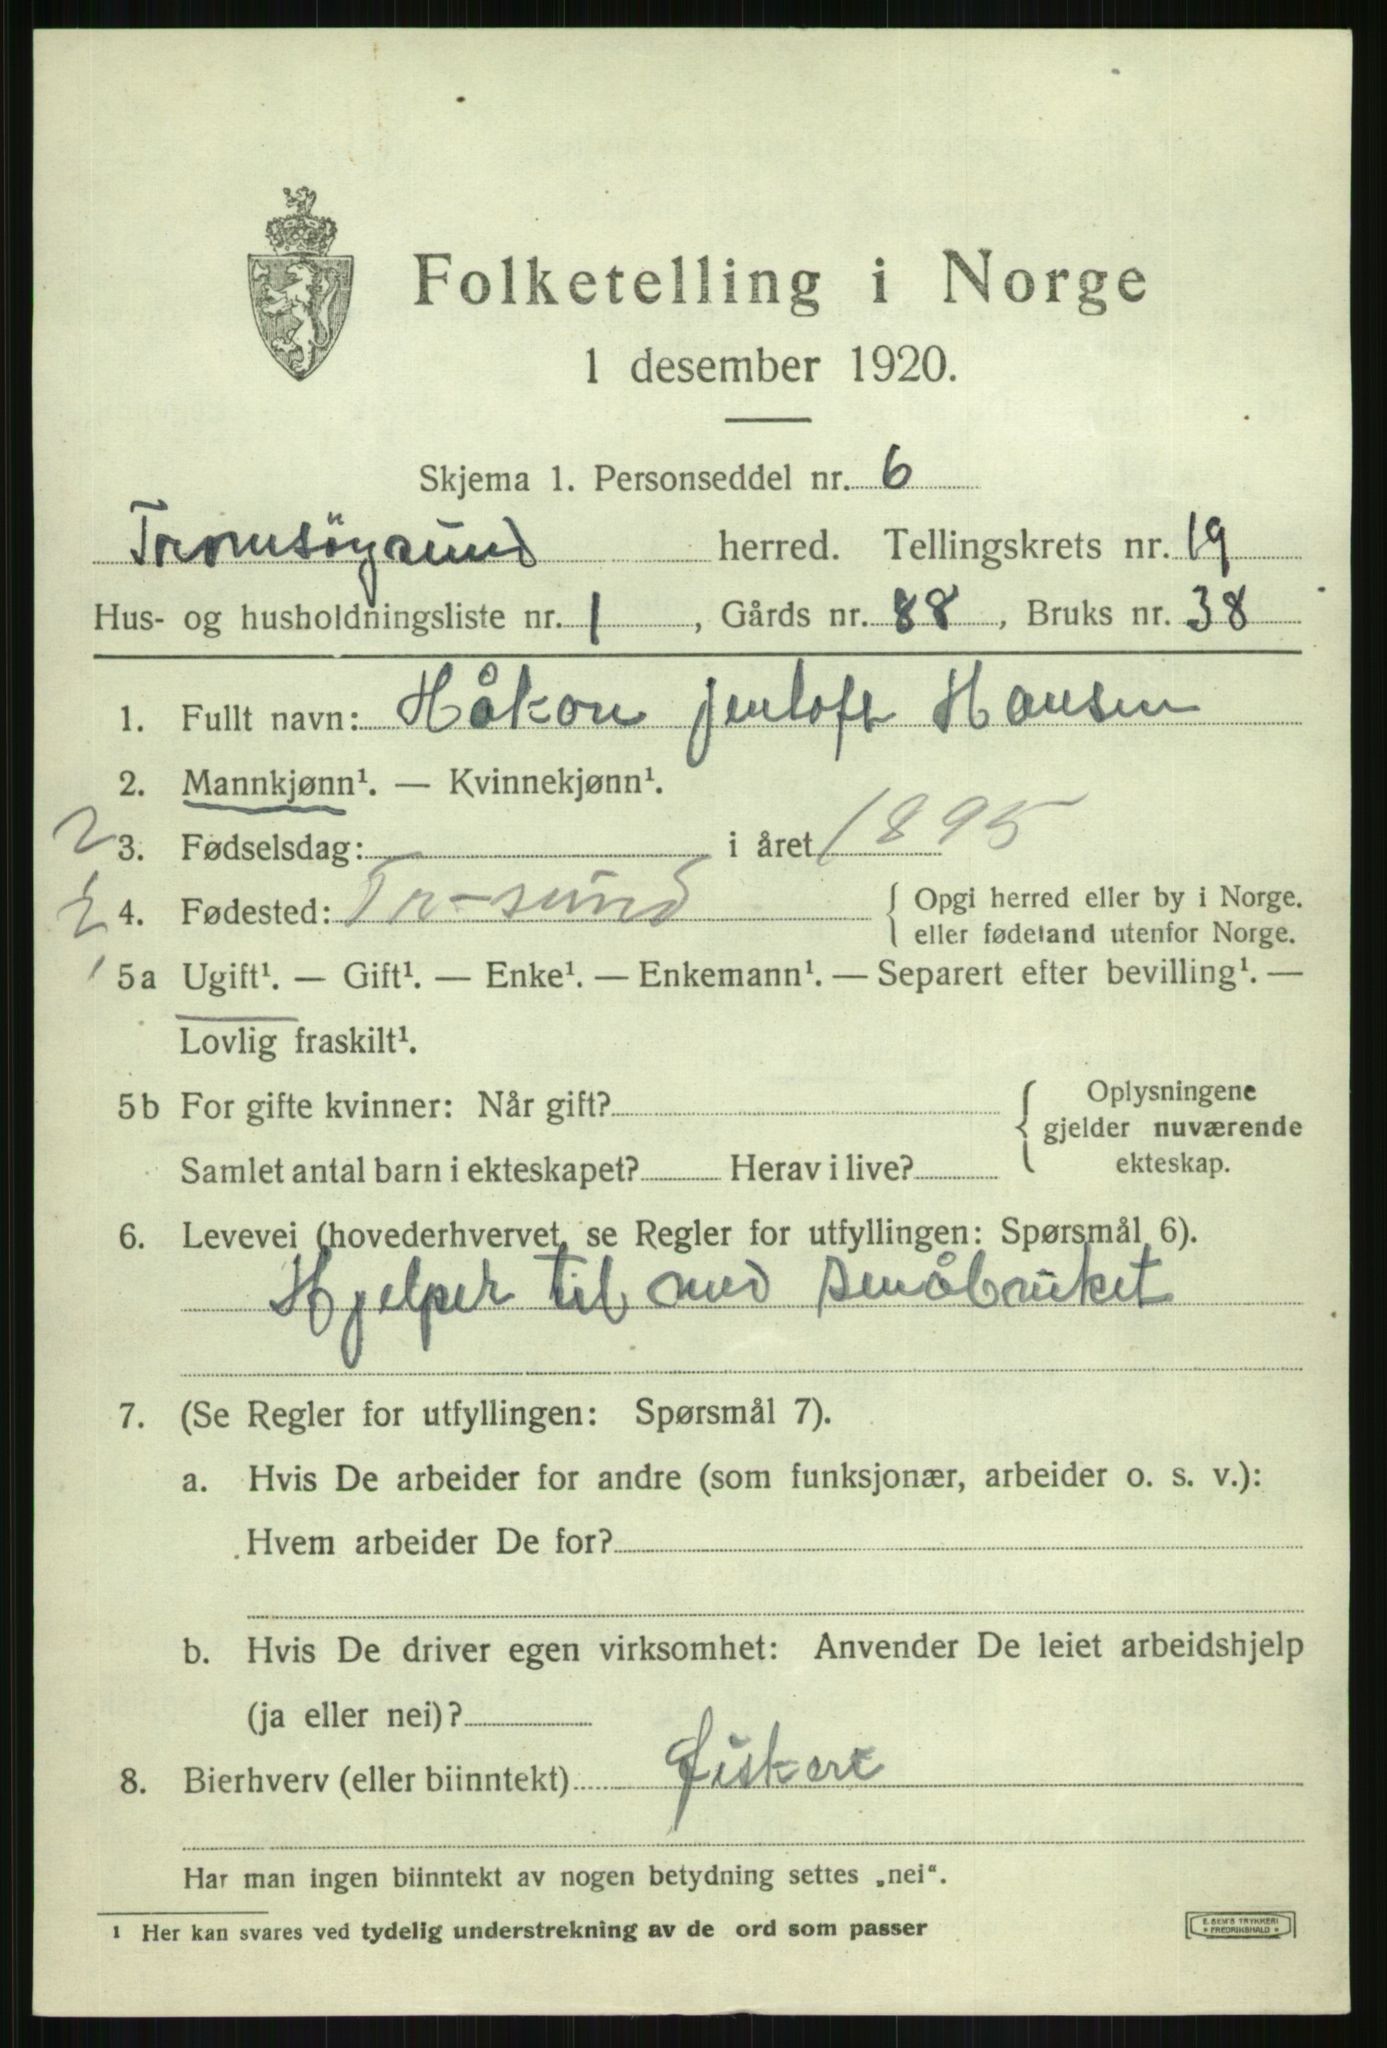 Folketelling i Norge
1 desember 1920.
Skjema 1. Personseddel nr. 6
Tromsöysund herred. Tellingskrets nr. 19
Hus- og husholdningsliste nr. 1, Gårds nr. 88, Bruks nr. 38
1. Fullt navn: Håkon Jenloft Hansen
2. Mannkjønn¹. — Kvinnekjønn¹.
2 3. Fødselsdag: i året 1895
4. Fødested: Tr-sund { Opgi herred eller by i Norge.
eller fødeland utenfor Norge.
1 5a Ugift¹. — Gift¹. — Enke¹. — Enkemann¹. — Separert efter bevilling¹. —
Lovlig fraskilt¹.
5b For gifte kvinner: Når gift? { Oplysningene
gjelder nuværende
Samlet antal barn i ekteskapet? Herav i live? ekteskap.
6. Levevei (hovederhvervet, se Regler for utfyllingen: Spørsmål 6).
Hjelper til med småbruket
7. (Se Regler for utfyllingen: Spørsmål 7).
a. Hvis De arbeider for andre (som funksjonær, arbeider o. s. v.):
Hvem arbeider De for?
b. Hvis De driver egen virksomhet: Anvender De leiet arbeidshjelp
(ja eller nei)?
8. Bierhverv (eller biinntekt) Fiskeri
Har man ingen biinntekt av nogen betydning settes „nei“.
¹ Her kan svares ved tydelig understrekning av de ord som passer
E. SEM'S TRYKKERI
* FREDRIKSHALD *